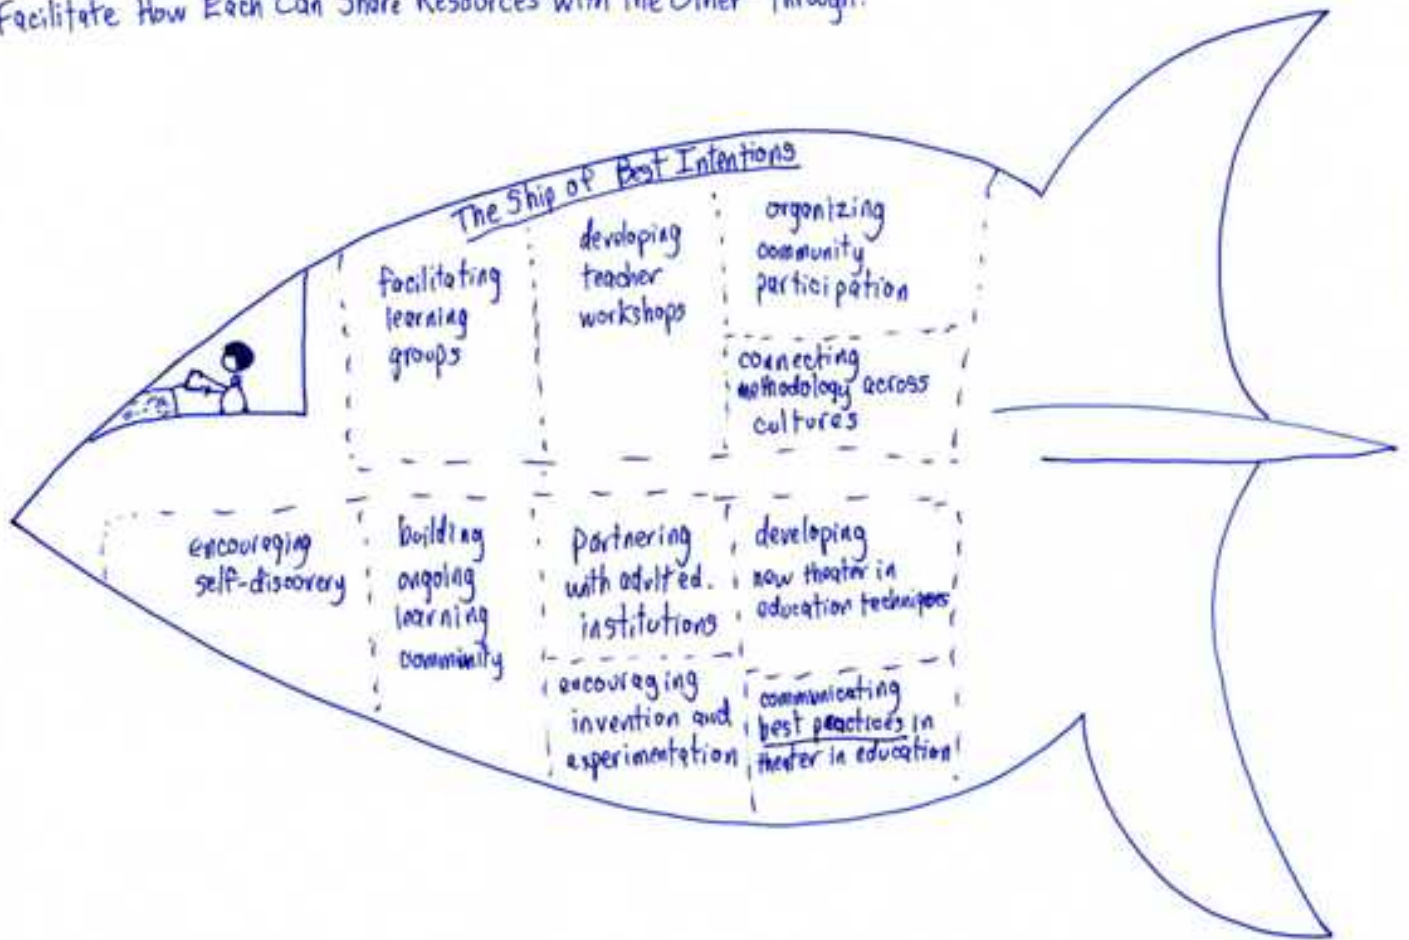 Facilitate How Each Can Share Resources with the Other Through:
The Ship of Best Intentions
facilitating
learning
groups
developing
teacher
workshops
organizing
community
participation
connecting
methodology across
cultures
encouraging
self-discovery
building
ongoing
learning
comminity
partnering
with adult ed.
institutions
developing
new theater in
education techniques
encouraging
invention and
experimentation
communicating
best practices in
theater in education